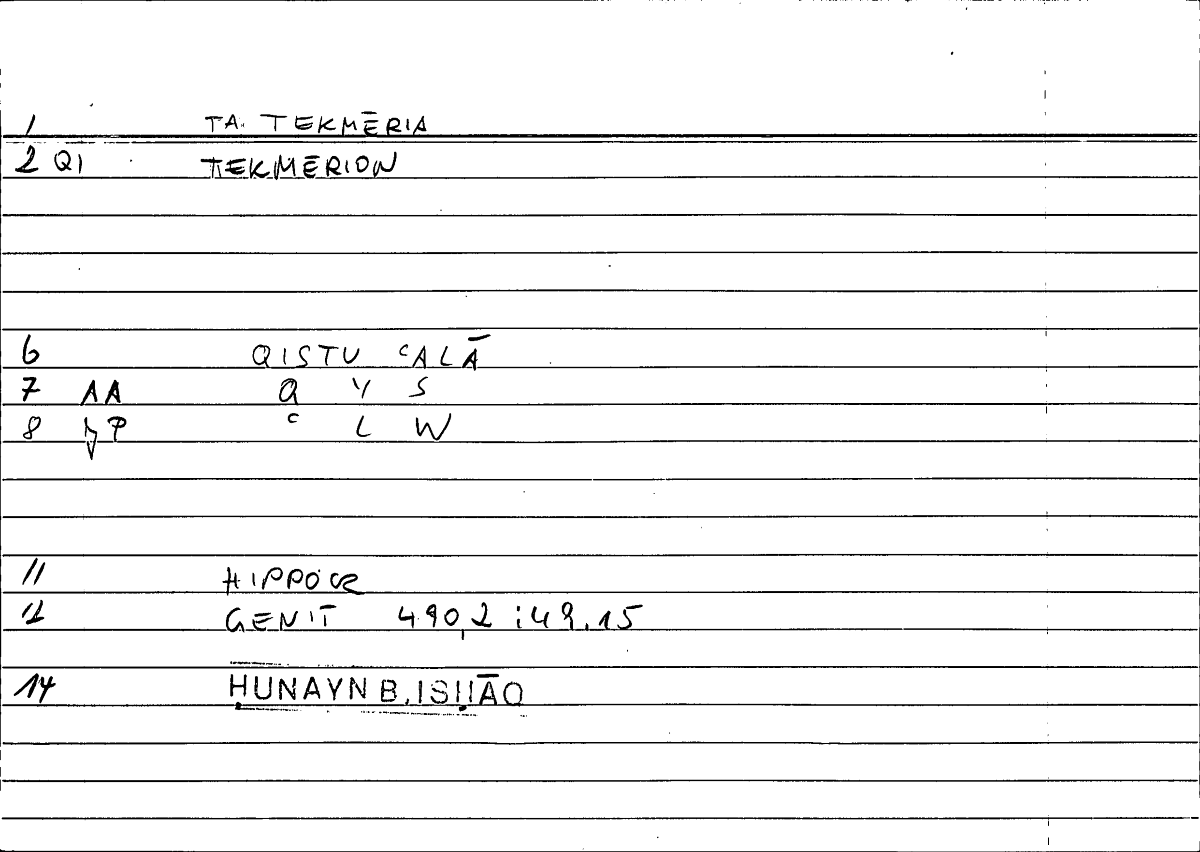 1 TA. TEKMĒRIA
2 QI TEKMĒRION
6 QISTU ᶜALĀ
7 AA Q Y S
8 P ᶜ L W
11 HIPPOCR
12 GENIT 490,2 :49.15
14 ḤUNAYN B. ISḤĀQ